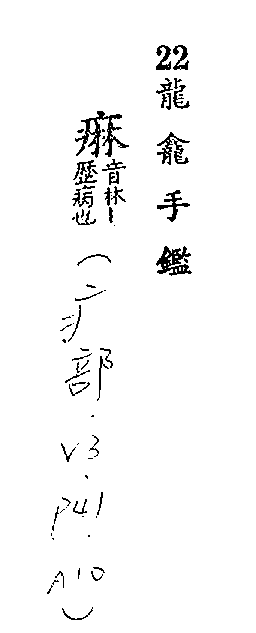 22龍龕手鑑
痳
音林丨
歷病也
(疒部.V3.P41.A10)